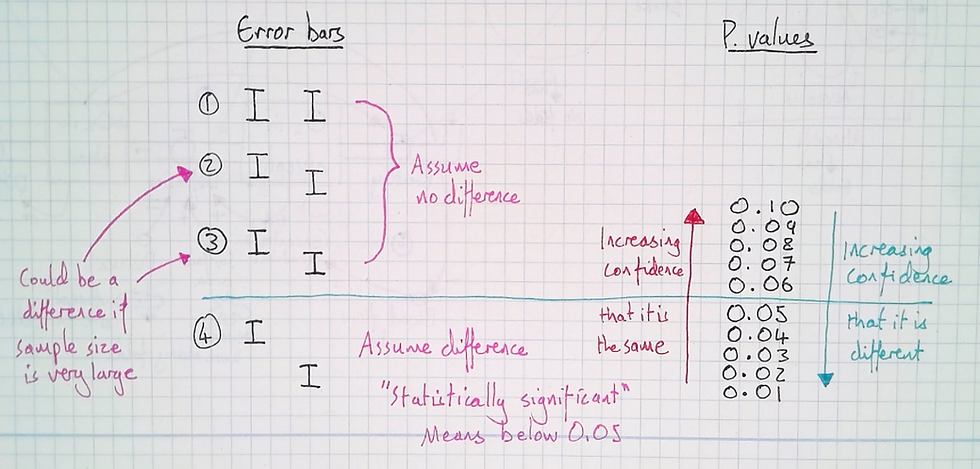 Error bars
P. values
①
②
③
④
Assume
no difference
Could be a
difference if
sample size
is very large
Assume difference
"Statistically significant"
Means below 0.05
Increasing
confidence
that it is
the same
0.10
0.09
0.08
0.07
0.06
0.05
0.04
0.03
0.02
0.01
Increasing
confidence
that it is
different